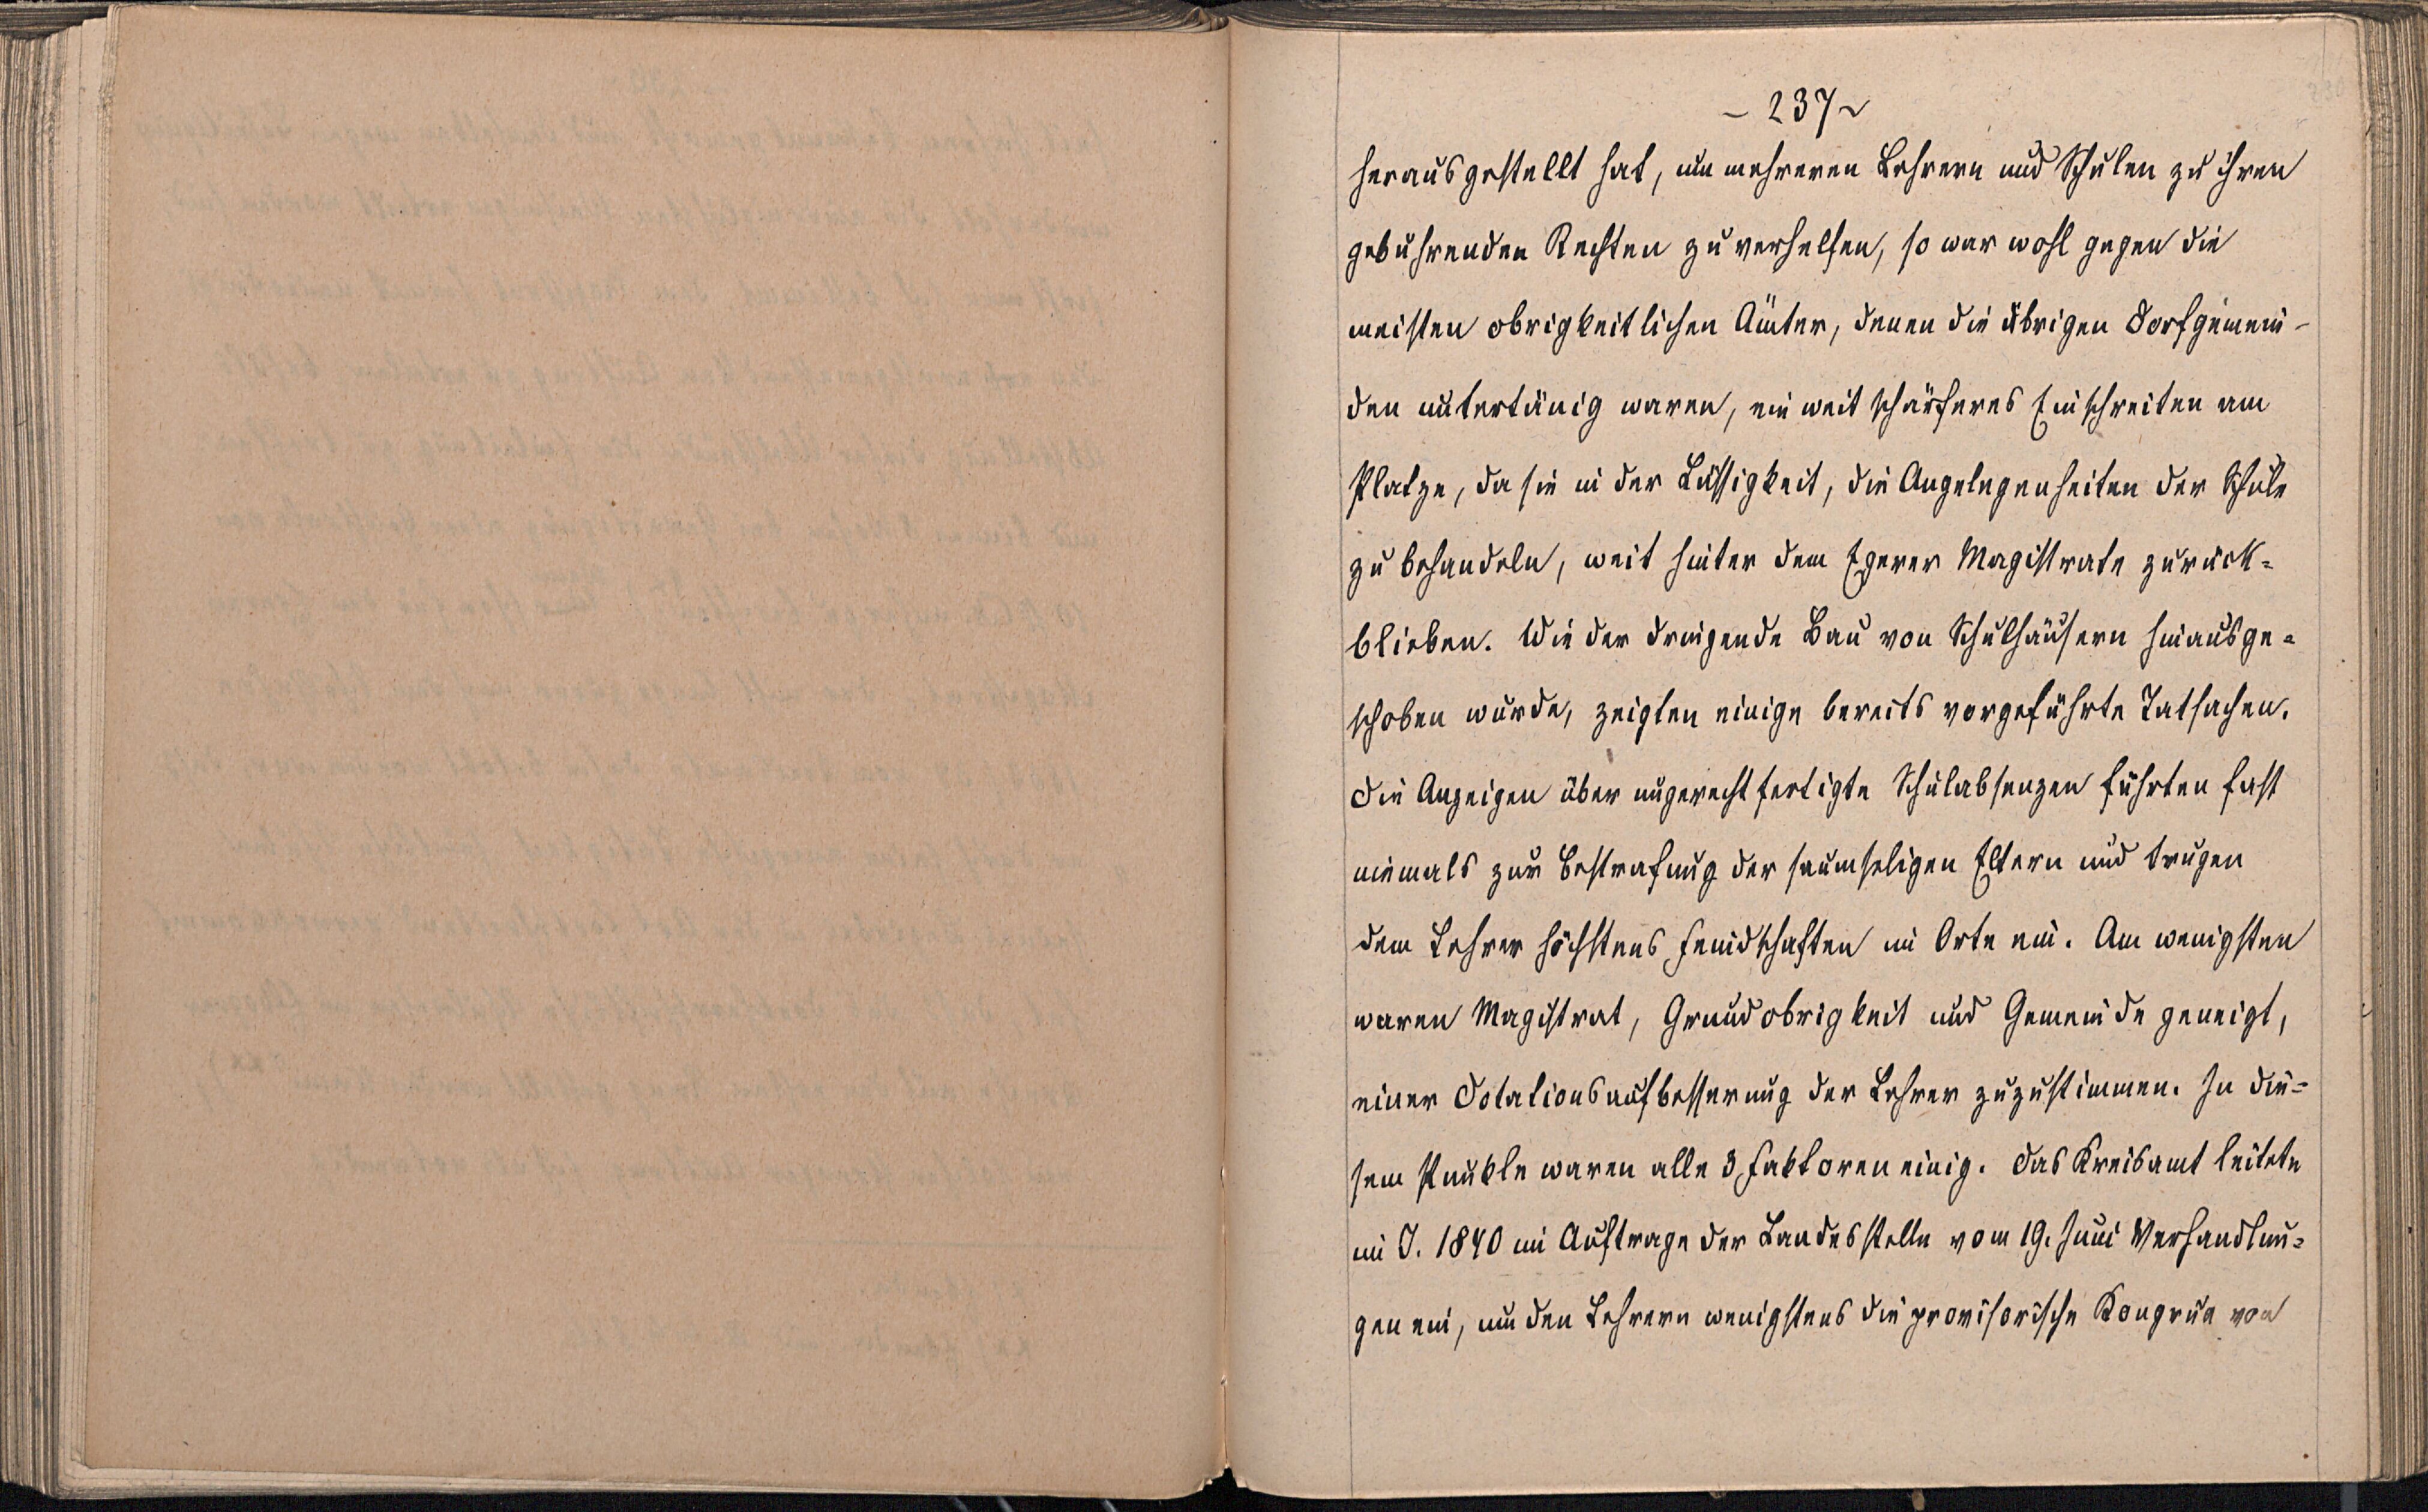 - 237 -
herausgestellt hat, um mehreren Lehrern und Schulen zu ihren
gebuhrenden Rechten zu verhelfen, so war wohl gegen die
meisten obrigkeitlichen Ämter, denen die übrigen Dorfgemein-
den untertänig waren, ein weit schärferes Einschreiten am
Platze, da sie in der Lässigkeit, die Angelegenheiten der Schule
zu behandeln, weit hinter dem Egerer Magistrate zurück-
blieben. Wie der dringende Bau von Schulhäusern hinausge-
schoben wurde, zeigten einige bereits vorgeführte Tatsachen.
Die Anzeigen über ungerechtfertigte Schulabsenzen führten fast
niemals zur Bestrafung der saumseligen Eltern und trugen
dem Lehrer höchstens Feindschaften im Orte ein. Am wenigsten
waren Magistrat, Grundobrigkeit und Gemeinde geneigt,
einer Dotationsaufbesserung der Lehrer zuzustimmen. In die-
sem Punkte waren alle 3 Faktoren einig. Das Kreisamt leitete
im J. 1840 im Auftrage der Landesstelle vom 19. Juni Verhandlun-
gen ein, um den Lehrern wenigstens die provisorische Kongrua von